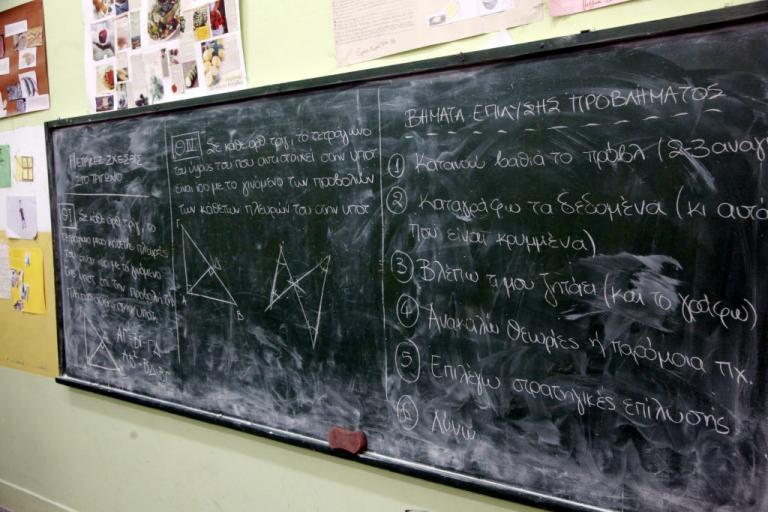 ΜΕΤΡΙΚΕΣ ΣΧΕΣΕΙΣ
ΣΤΟ ΤΡΙΓΩΝΟ
ΘΙ Σε κάθε ορθ τριγ, το
τετράγωνο μιας κάθετης πλευράς
του είναι ίσο με το γινόμενο
της υποτ επί την προβολή της
πλευράς στην υποτ.
ΘΙΙΙ Σε κάθε ορθ τριγ, το τετράγωνο
του ύψους του που αντιστοιχεί στην υποτ
είναι ίσο με το γινόμενο των προβολών
των κάθετων πλευρών του στην υποτ
Γ
Δ
Α
Β
ΒΗΜΑΤΑ ΕΠΙΛΥΣΗΣ ΠΡΟΒΛΗΜΑΤΟΣ
1 Κατανοώ βαθιά το πρόβλ (2-3 αναγ
2 Καταγράφω τα δεδομένα (κι αυτά
που είναι κρυμμένα)
3 Βλέπω τι μου ζητάει (και το γράφω)
4 Ανακαλώ θεωρίες ή παρόμοια πχ.
5 Επιλέγω στρατηγικές επίλυσης
6 Λύνω